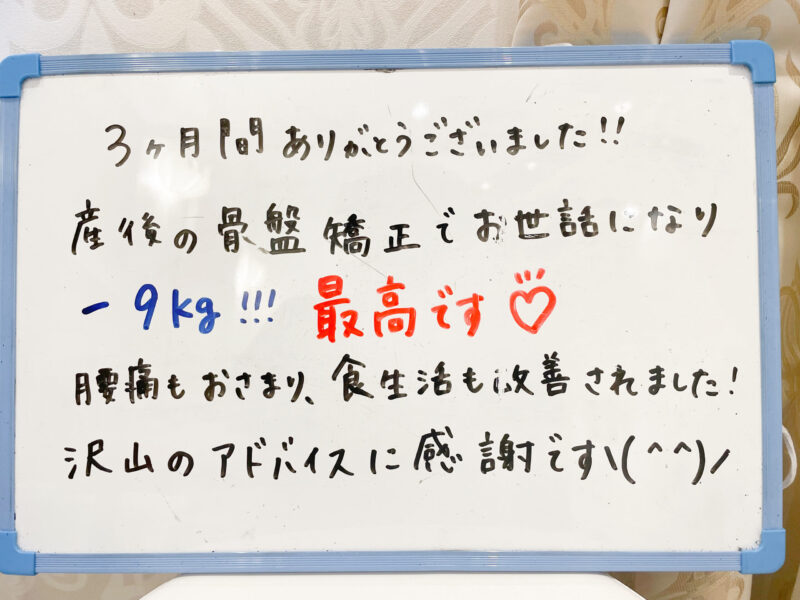 3ヶ月間ありがとうございました!!
産後の骨盤矯正でお世話になり
-9kg!!! 最高です♡
腰痛もおさまり、食生活も改善されました!
沢山のアドバイスに感謝です\(^^)/